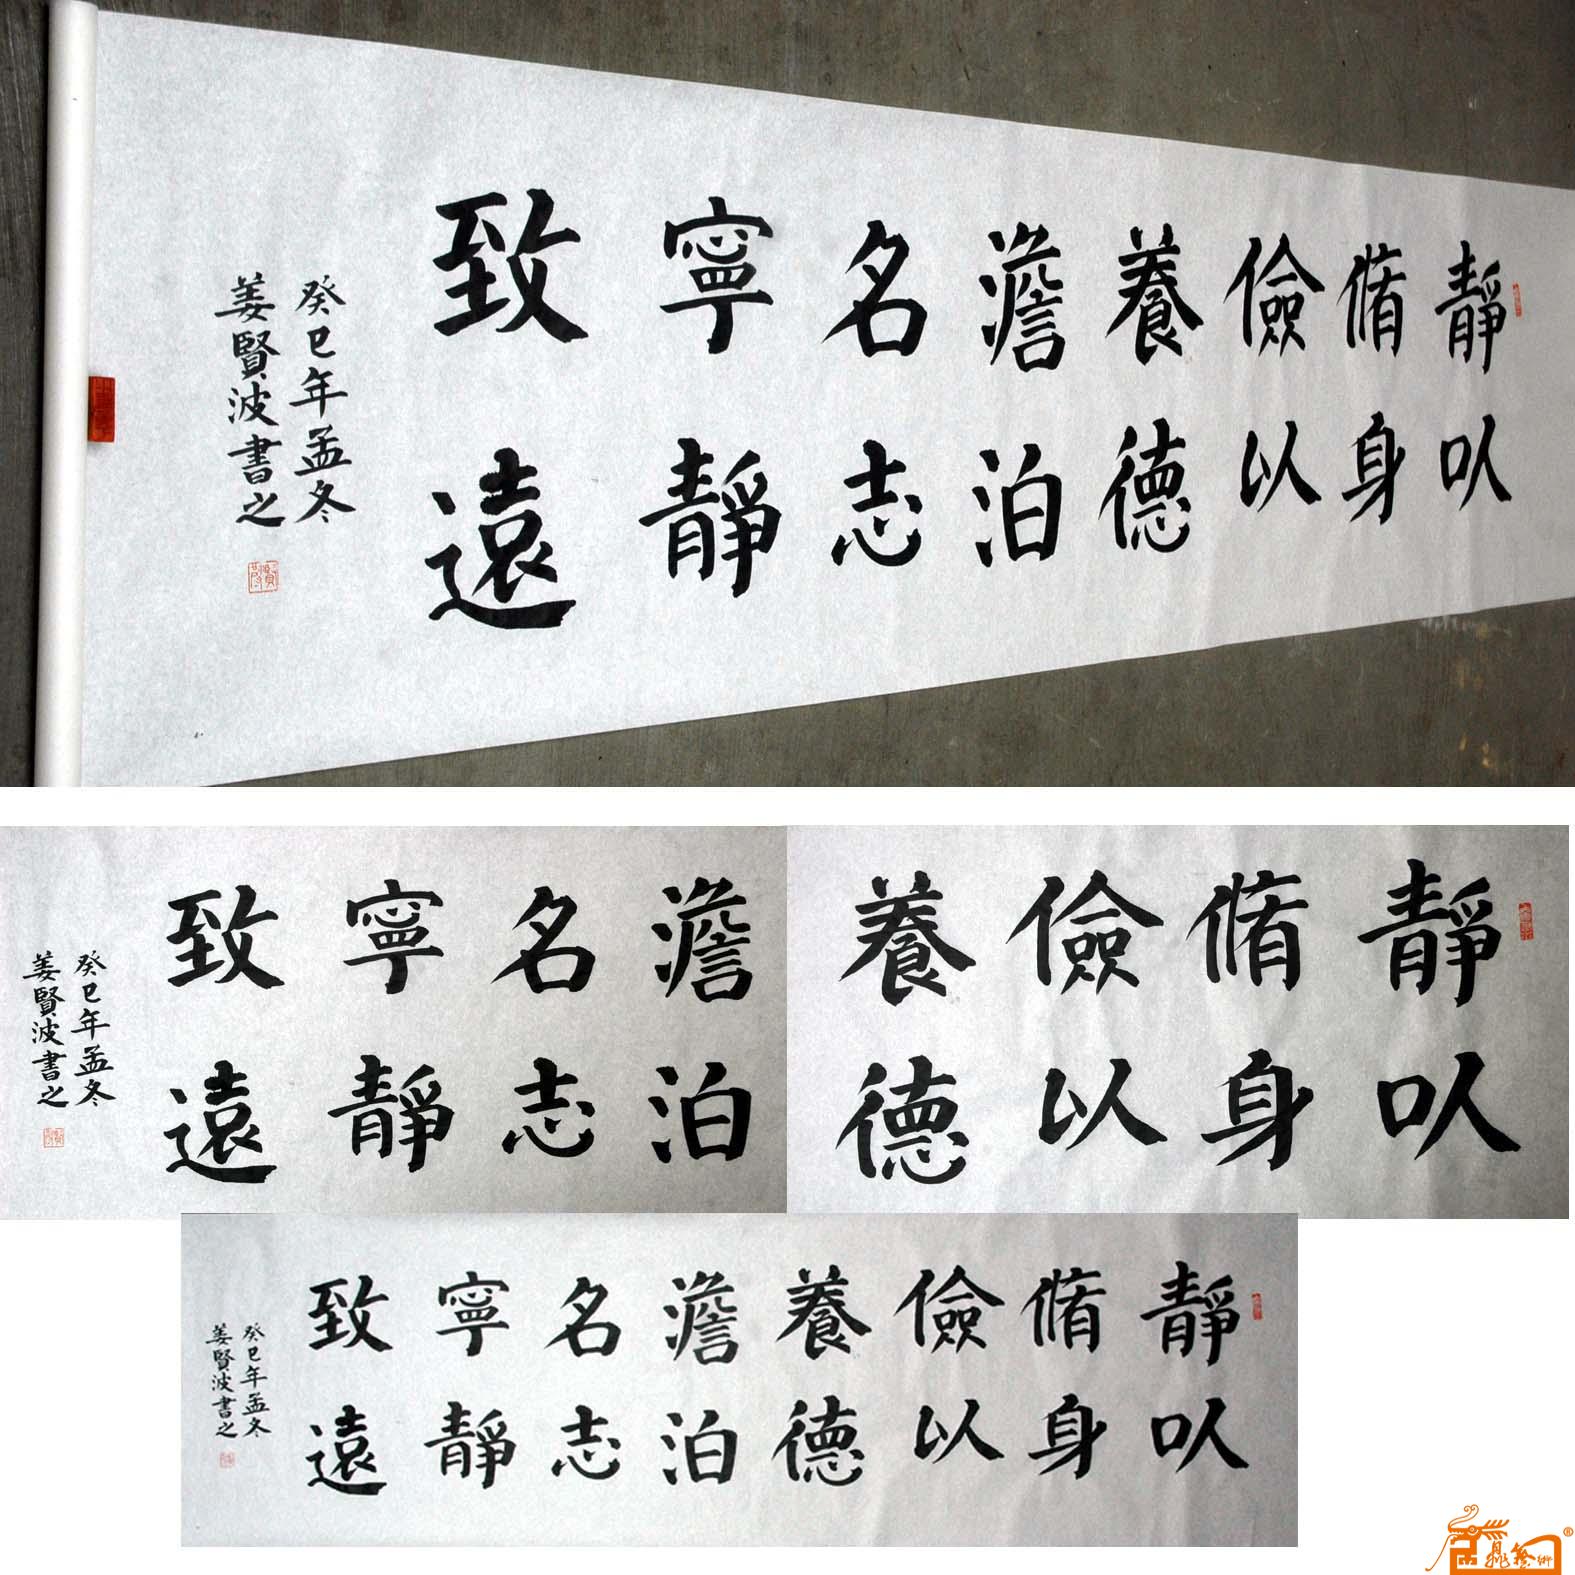 靜㕥
脩身
儉以
養德
澹泊
名志
寧靜
致遠
癸巳年孟冬
姜賢波書之
靜㕥
脩身
儉以
養德
澹泊
名志
寧靜
致遠
癸巳年孟冬
姜賢波書之
靜㕥
脩身
儉以
養德
澹泊
名志
寧靜
致遠
癸巳年孟冬
姜賢波書之